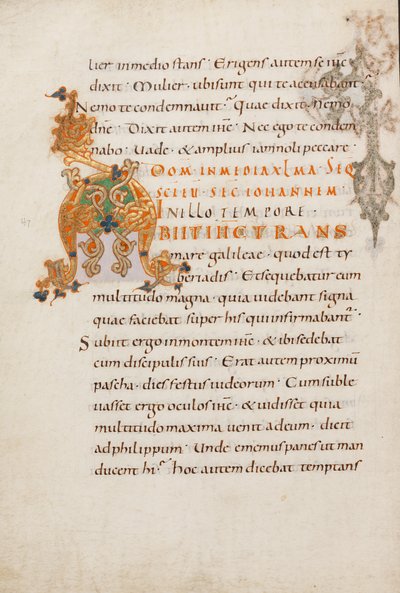 lier in medio stans · Erigens autem se ihc
dixit · Mulier · ubi sunt qui te accusabant
Nemo te condemnavit · Quae dixit · Nemo
dne · Dixit autem ihc · Nec ego te condem
nabo · Vade · & amplius iam noli peccare ·
DOM · IN MEDIA XLMA · SEQ
SCI EU · SEC IOHANNEM
IN ILLO TEMPORE ·
ABIIT IHC TRANS
mare galileae · quod est ty
beriadis · Et sequebatur eum
multitudo magna · quia videbant signa
quae faciebat super his qui infirmabant ·
Subiit ergo in montem ihc · & ibi sedebat
cum discipulis suis · Erat autem proximū
pascha · dies festus iudeorum · Cum suble
uasset ergo oculos ihc · & uidisset quia
multitudo maxima uenit ad eum · dicit
ad philippum · Unde ememus panes ut man
ducent hi · hoc autem dicebat temptans
47